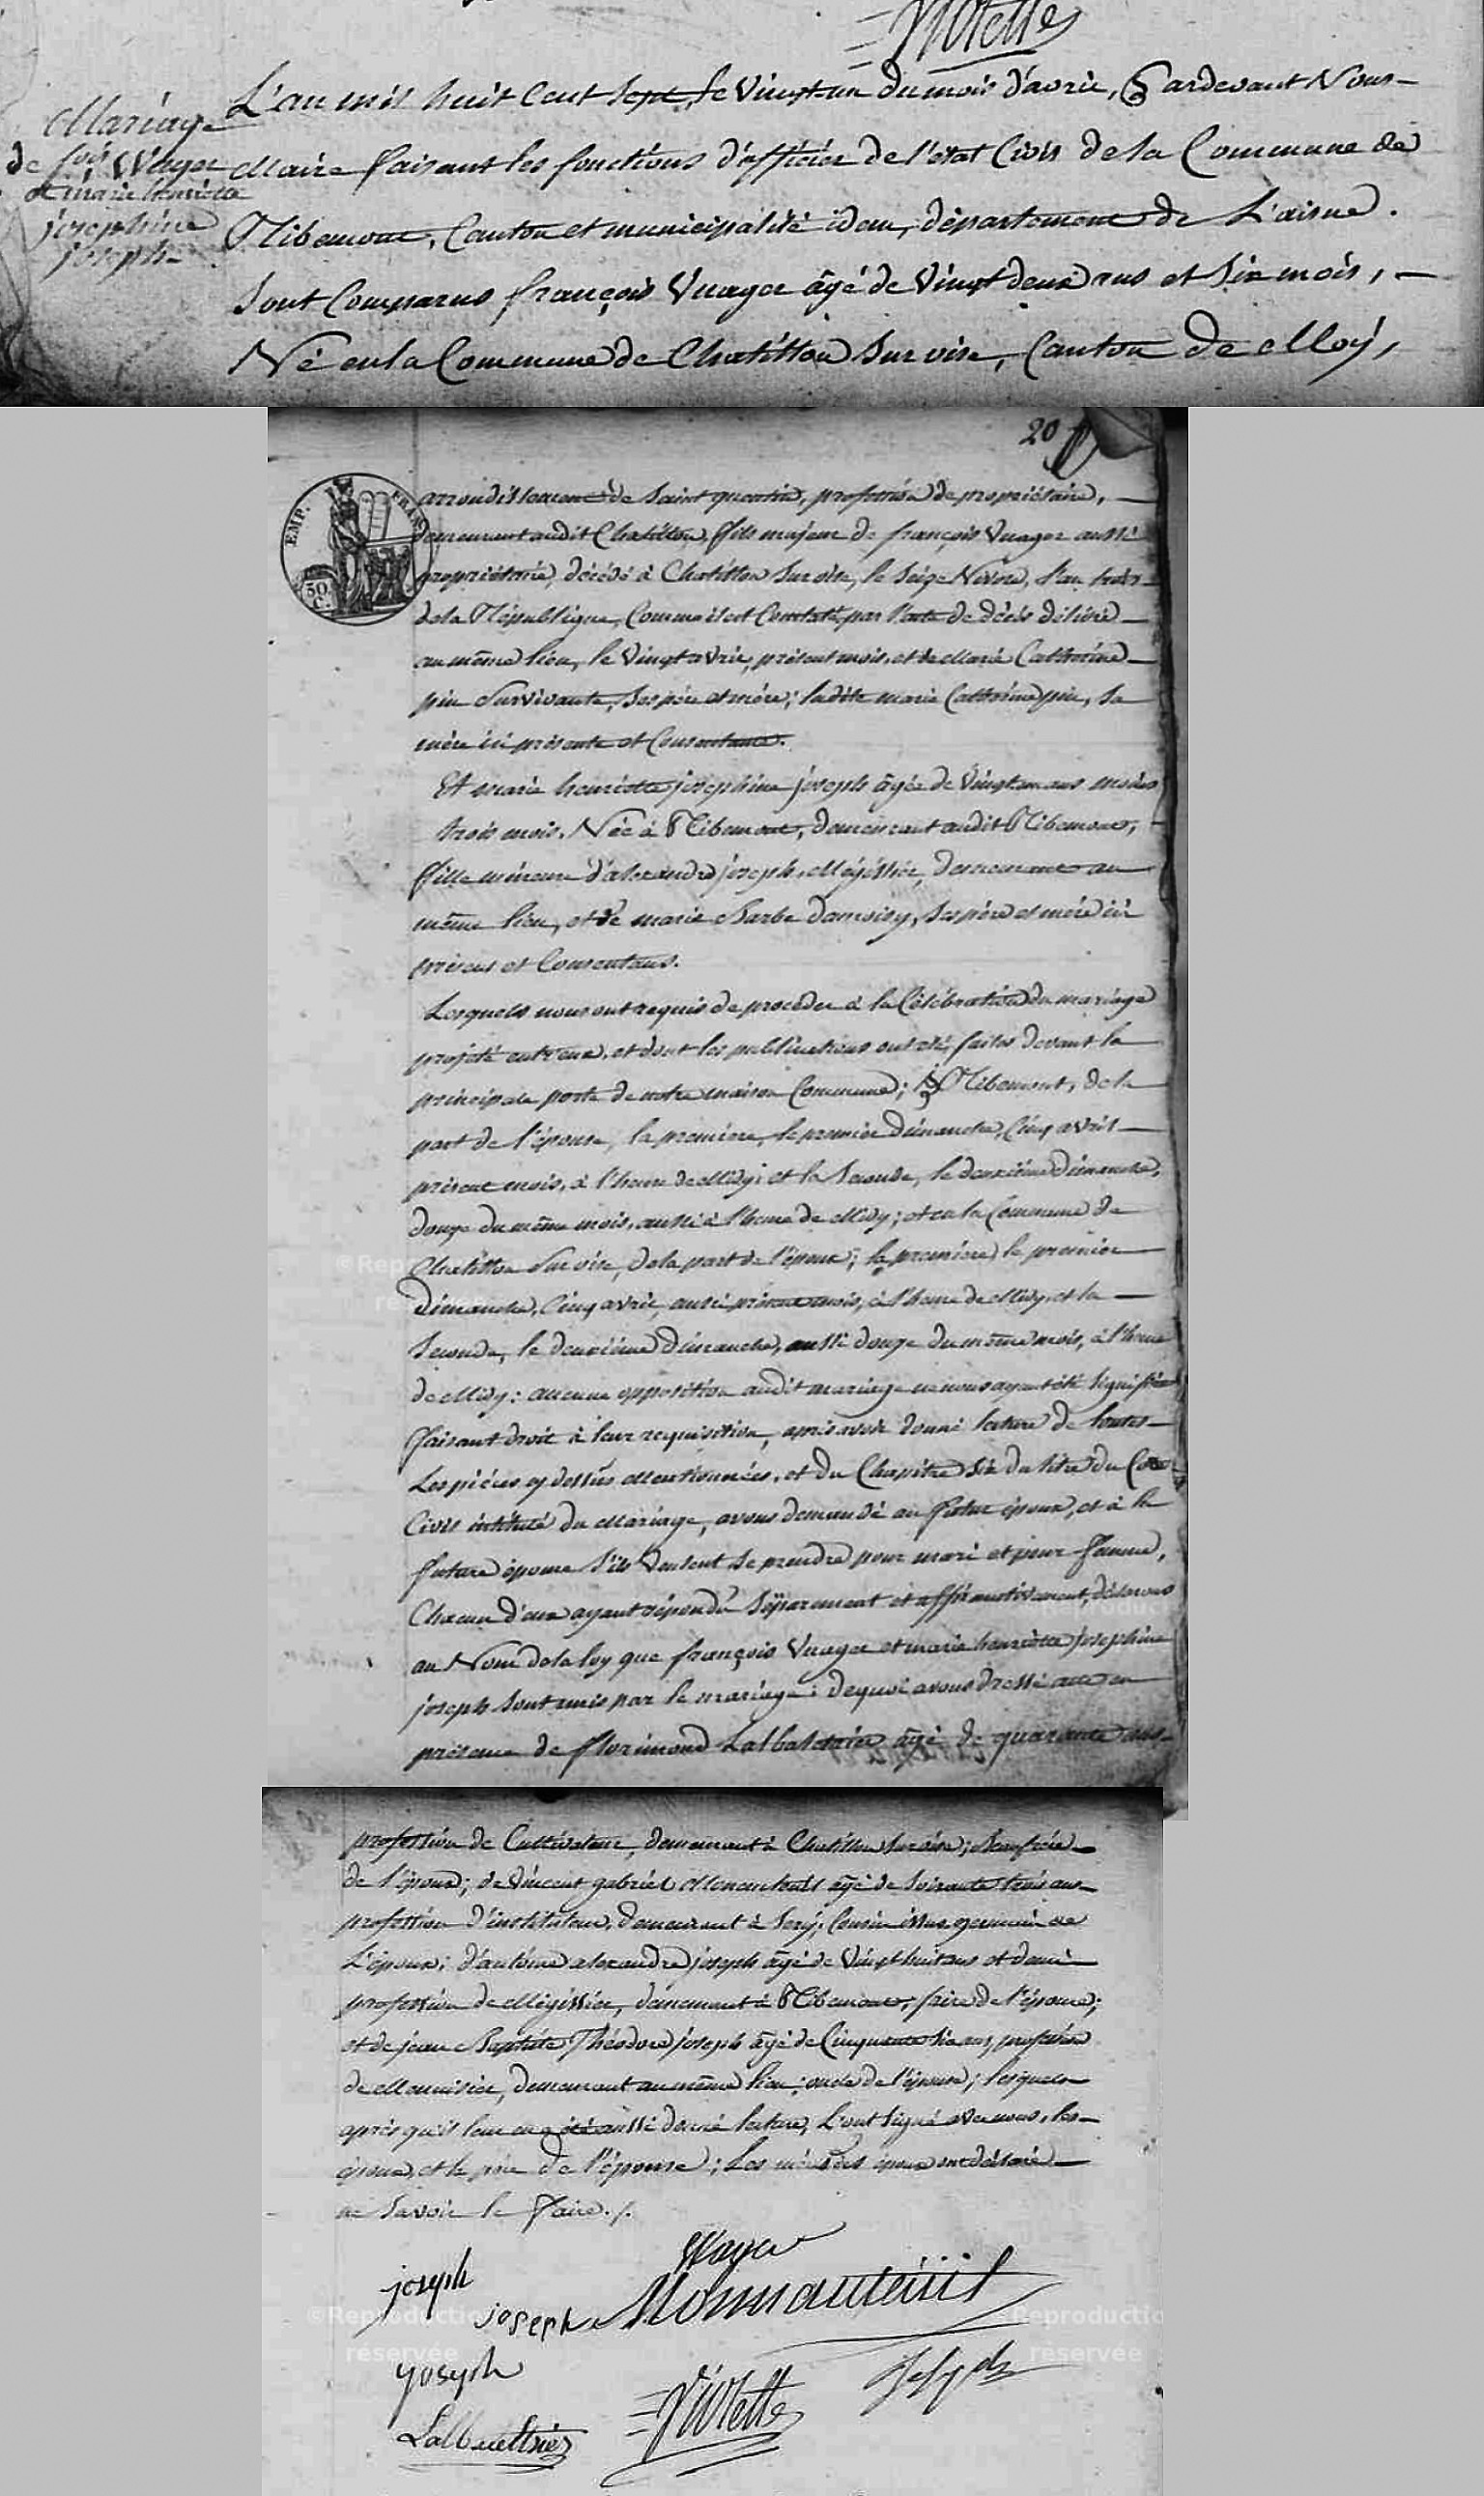 Violette
L'an mil huit cent sept, le vingt un du mois d'avril, Pardevant Nous
Mariage
de fois Wager
et marie henriette
joséphine
joseph
Maire faisant les fonctions d'officier de l'état Civil de la Commune de
Ribemont, Canton et municipalité idem, département de L'aisne.
Sont Comparus françois Vuager âgé de vingt deux ans et Six mois,
Né en la Commune de Chatillon Sur oise, Canton de Moÿ,
20
EMP. FRAN.
50 C.
arrondissement de Saint quentin, profession de propriétaire,
demeurant audit Chatillon, fils majeur de françois Vuager aussi
propriétaire, décédé à Chatillon Sur oise, le Seize Nivose, l'an trois
de la République, Comme il est Constaté par l'acte de décès délivré
au même lieu, le vingt avril, présent mois, et de Marie Catherine
pin Survivante, Ses père et mère; ladite marie Catherine pin, Sa
mère ici présente et Consentante.
Et marie henriette joséphine joseph âgée de vingt un ans moins
trois mois, Née à Ribemont, demeurant audit Ribemont,
fille mineure d'alexandre joseph, Mégissier, demeurant au
même lieu, et de marie Barbe damoisy, Ses père et mère ici
présens et Consentans.
Lesquels nous ont requis de procéder à la Célébration du mariage
projeté entr'eux, et dont les publications ont été faites devant la
principale porte de notre maison Commune; Ribemont, de la
part de l'épouse, la première, le premier dimanche, Cinq avril
présent mois, à l'heure de Midy; et la Seconde, le deuxième dimanche,
douze du même mois, aussi à l'heure de Midy; et en la Commune de
Chatillon Sur oise, de la part de l'époux; la première, le premier
dimanche, Cinq avril, aussi présent mois, à l'heure de Midy, et la
Seconde, le deuxième dimanche, aussi douze du même mois, à l'heure
de Midy: aucune opposition audit mariage ne nous ayant été Signifiée
faisant droit à leur requisition, après avoir donné lecture de toutes
Les pièces cy dessus Mentionnées, et du Chapitre Six du titre du Code
Civil intitulé du Mariage, avons demandé au futur époux, et à la
future épouse S'ils veulent Se prendre pour mari et pour femme,
Chacun d'eux ayant répondu Séparement et affirmativement, déclarons
au Nom de la loy que françois Vuager et marie henriette joséphine
joseph Sont unis par le mariage: de quoi avons dressé acte en
présence de florimond Lalbaletrier âgé de quarante ans
profession de Cultivateur, demeurant à Chatillon Sur oise; beaufrère
de l'époux; de Vincent gabriel Monanteuil âgé de Soixante trois ans
profession d'instituteur, demeurant à Sery, Cousin issus germain de
L'époux; d'antoine alexandre joseph âgé de vingt huit ans et demi
profession de Mégissier, demeurant à Ribemont, frère de l'épouse;
et de jean Baptiste Théodore joseph âgé de Cinquante Six ans, profession
de Menuisier, demeurant au même lieu; oncle de l'épouse; lesquels
après qu'il leur en a été aussi donné lecture, L'ont Signé avec nous, les
époux, et le père de l'épouse; Les mères des époux ont déclaré
ne Savoir le faire./.
Wager
joseph
joseph Monnanteüil
©Reproduction réservée
yoseph
Joseph
Violette
Lalbaletrier